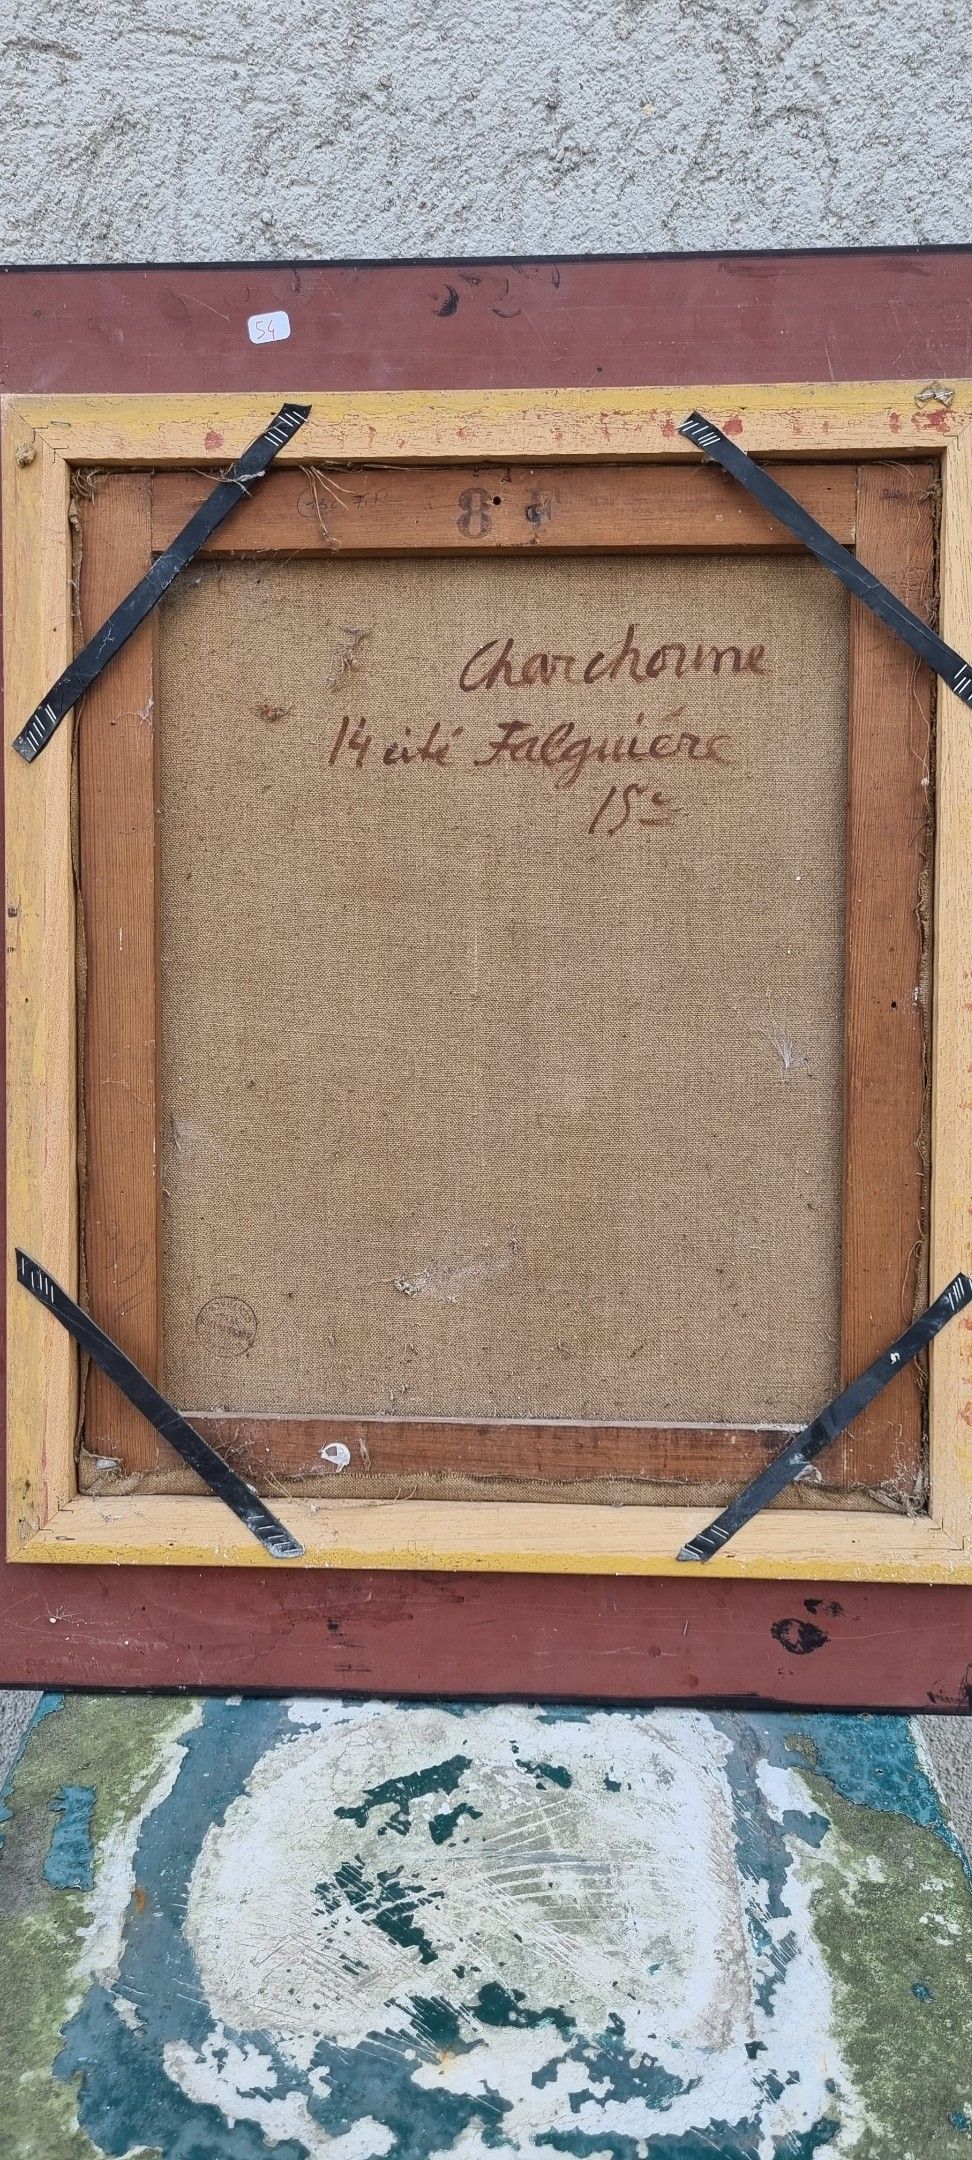 54
8 F
Charchoune
14 cité Falguière
15e